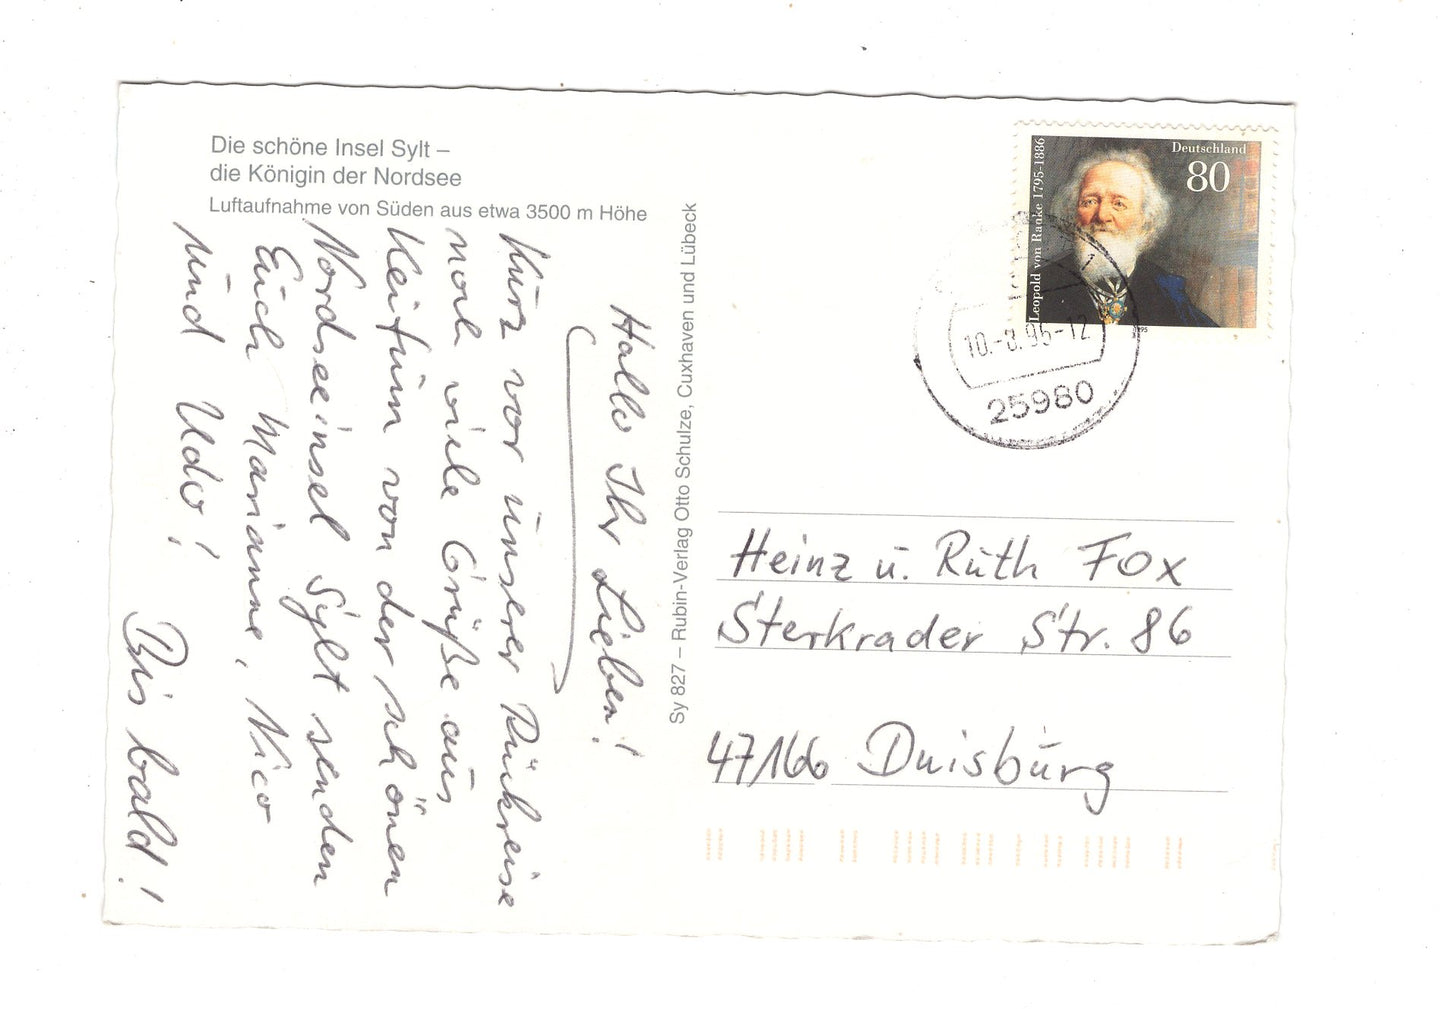 Die schöne Insel Sylt –
die Königin der Nordsee
Luftaufnahme von Süden aus etwa 3500 m Höhe
Hallo Ihr Lieben!
Kurz vor unserer Rückreise
noch viele Grüße aus
Keitum von der schönen
Nordseeinsel Sylt senden
Euch Marianne, Nico
und Udo!
Bis bald!
Sy 827 – Rubin-Verlag Otto Schulze, Cuxhaven und Lübeck
Deutschland
80
Leopold von Ranke 1795-1886
10.-8.95-12
25980
Heinz u. Ruth Fox
Sterkrader Str. 86
47166 Duisburg